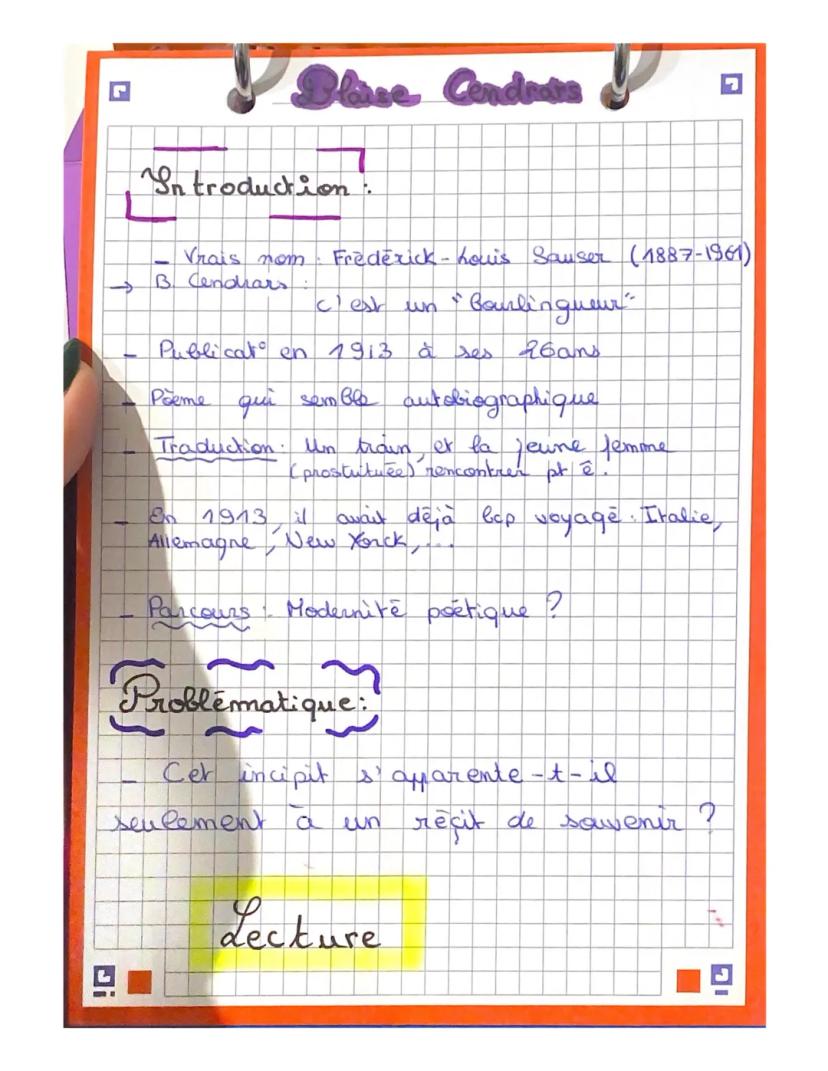 Blaise Cendrars
Introduction :
- Vrais nom : Frēdērick-Louis Sauser (1887-1961)
→ B. Cendrars :
c'est un "Bourlingueur"
- Publicat° en 1913 à ses 26ans
- Pōeme qui semble autobiographique
- Traduction : Un train, et la jeune femme
(prostitutuée) rencontrer pt ē.
- En 1913, il avait dējà bcp voyagē : Italie,
Allemagne, New Yorck, ...
- Parcours : Modernitē poētique ?
Problēmatique :
- Cet incipit s'apparente-t-il
seulement ā un rēçit de souvenir ?
Lecture